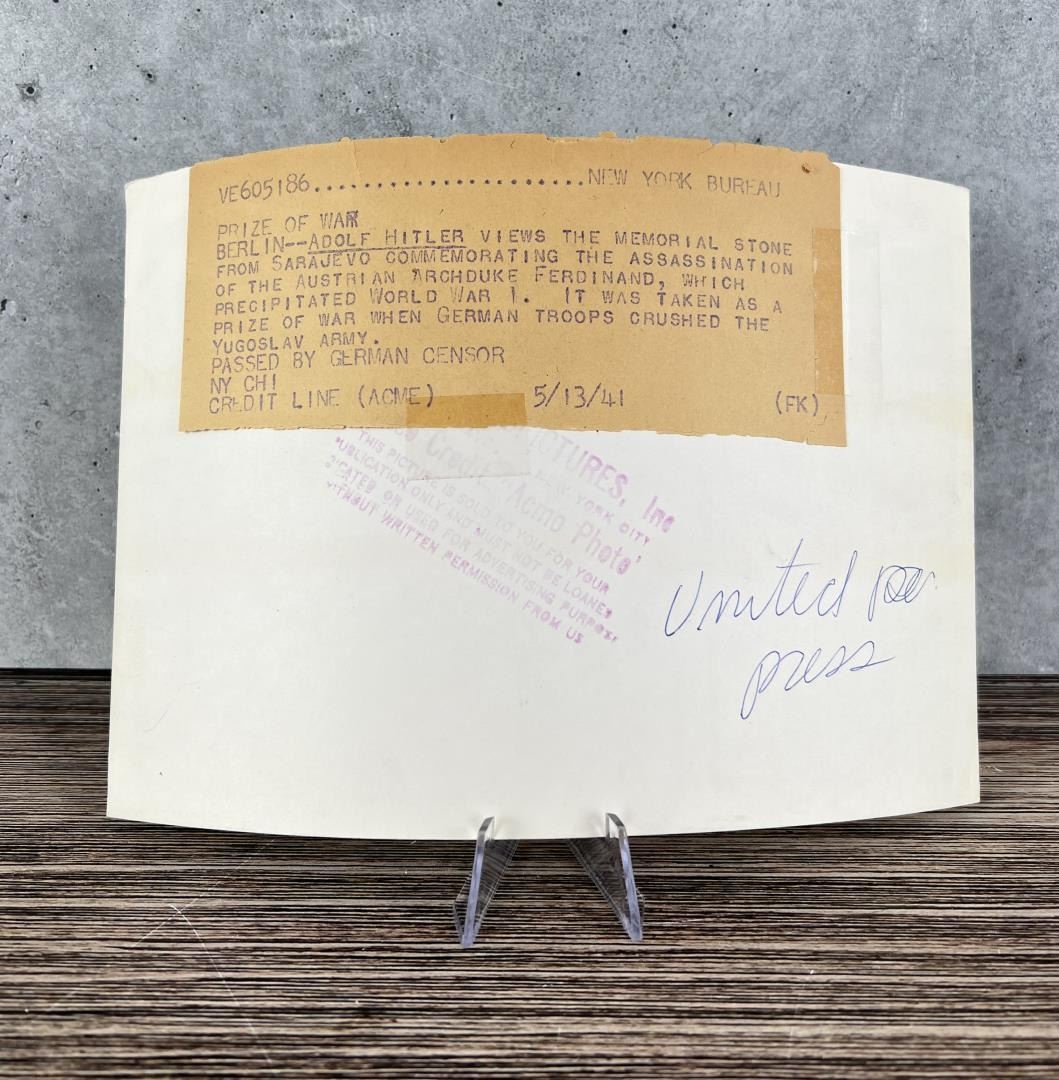 VE605186......................NEW YORK BUREAU
PRIZE OF WAR
BERLIN--ADOLF HITLER VIEWS THE MEMORIAL STONE
FROM SARAJEVO COMMEMORATING THE ASSASSINATION
OF THE AUSTRIAN ARCHDUKE FERDINAND, WHICH
PRECIPITATED WORLD WAR I. IT WAS TAKEN AS A
PRIZE OF WAR WHEN GERMAN TROOPS CRUSHED THE
YUGOSLAV ARMY.
PASSED BY GERMAN CENSOR
NY CHI
CREDIT LINE (ACME) 5/13/41 (FK)
PICTURES, Inc
NEW YORK CITY
Credit Acme Photo'
THIS PICTURE IS SOLD TO YOU FOR YOUR
PUBLICATION ONLY AND MUST NOT BE LOANED
OR USED FOR ADVERTISING PURPOSE
WITHOUT WRITTEN PERMISSION FROM US
United
press